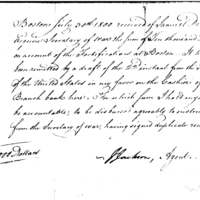 Boston July 30th 1800 received of Samuel
Secretary of War the sum of Ten thousand
on account of the Fortifications at Boston. It
been remitted by a draft of the 22d instant from the
of the United States in my favor on the Cashier of
Branch bank here: For which sum I hold my
be accountable; to be disbursed agreeably to instruc
from the Secretary of war, having signed duplicate
000 Dollars
Jackson, Agent.